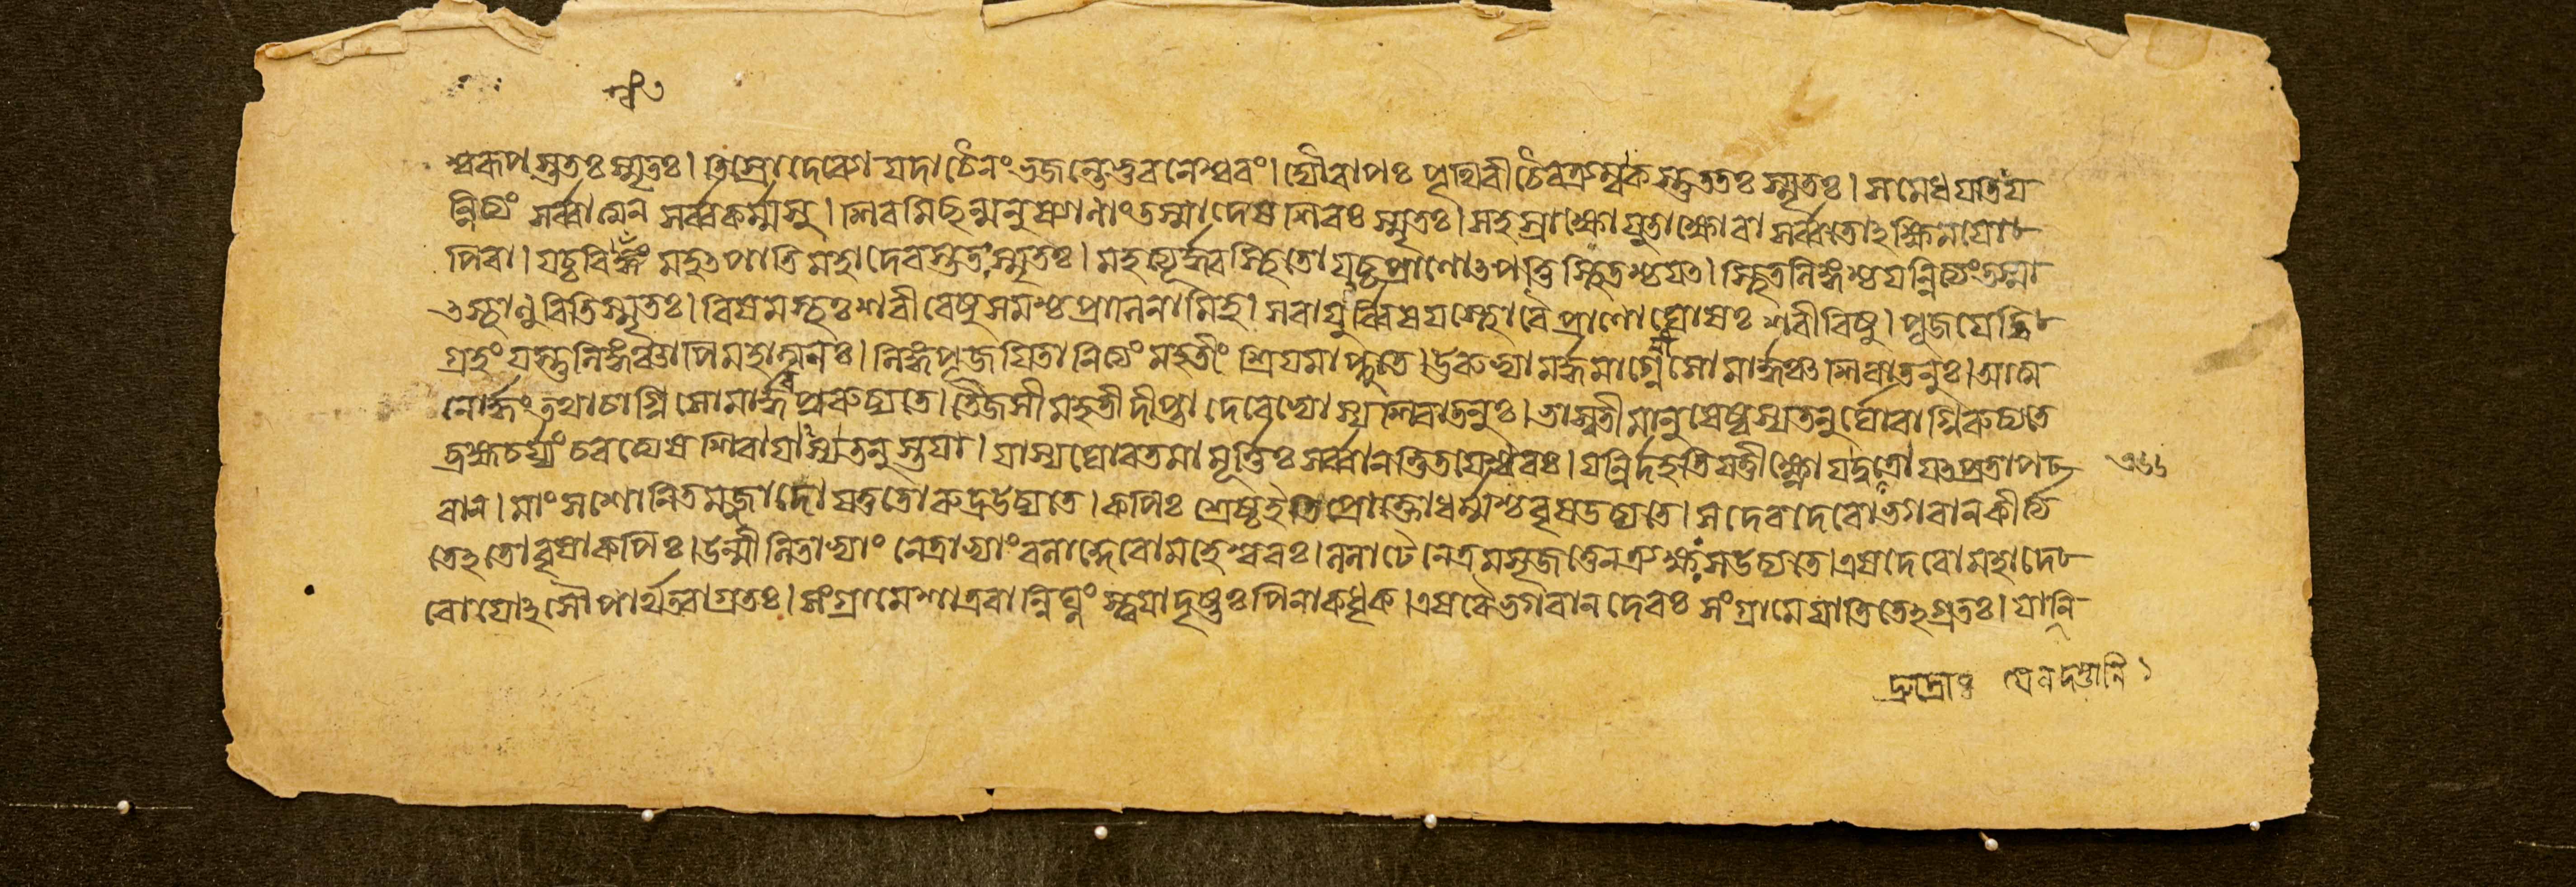 শ্বরূপস্ততঃ স্মৃতঃ। তিস্রোদেব্যো যদাচৈনং ভজন্তে ভুবনেশ্বরং। দ্যৌরাপঃ পৃথিবীচৈব ত্র্যম্বকস্তুততঃ স্মৃতঃ। সমেধযতি য
ন্নিত্যং সর্ব্বার্থান সর্ব্বকর্ম্মসু। শিবমিছন্মনুষ্যাণাং তস্মাদেষ শিবঃ স্মৃতঃ। সহস্রাক্ষোযুতাক্ষোবা সর্ব্বতোঽক্ষিমযো
পিবা। যচ্চবিশ্বং মহৎপাতি মহাদেবস্ততঃ স্মৃতঃ। স্থিতো যচ্চ প্রাণোৎপত্তি স্থিতশ্চযৎ। স্থিতলিঙ্গশ্চ যন্নিত্যং তস্মা
ৎস্থাণুরিতি স্মৃতঃ। বিষমস্থঃ শরীরেষু সমশ্চ প্রাণিনামিহ। সবাযুর্ব্বিষমস্থো বৈ শরীরিষু। পূজযেদ্বি
গ্রহং যস্তু লিঙ্গং বাপি মহাত্মনঃ। লিঙ্গপূজযিতা নিত্যং মহতীং শ্রিযমাপ্নুতে। উরুভ্যামর্দ্ধমাগ্নেযং সোমার্দ্ধঞ্চ শিবাতনুঃ। আত্ম
নোর্দ্ধং তথাচাগ্নি সোমার্দ্ধং পুনরুচ্যতে। তৈজসী মহতী দীপ্তা দেবেভ্যোস্য শিবাতনুঃ। ভাস্বতী মানুষেষ্বস্য তনুর্ঘোরাগ্নিরুচ্যতে
ব্রহ্মচর্য্যং চরত্যেষ শিবাযাস্য তনুস্তযা। যাস্য ঘোরতমা মূর্ত্তিঃ সর্ব্বানত্তি তযেশ্বরঃ। যন্নির্দহতি যত্তীক্ষ্ণো যদুগ্রো যৎপ্রতাপ
বান। মাংসশোনিতমজ্জাদো যত্ততোরুদ্রউচ্যতে। কপিঃ শ্রেষ্ঠ ইতি প্রোক্তো ধর্ম্মশ্চ বৃষ উচ্যতে। সদেবদেবো ভগবান কীর্ত্য
তেঽতো বৃষাকপিঃ। উন্মীলিতাভ্যাং নেত্রাভ্যাং বলাদ্দেবো মহেশ্বরঃ। ললাটে নেত্রমসৃজত্তেন ত্র্যক্ষঃ সউচ্যতে। এষদেবো মহাদে
বো যোঽসৌ পার্থ তবাগ্রতঃ। সংগ্রামে শাত্রবান্নিঘ্নং স্ত্বযাদৃষ্টঃ পিনাকধৃক। এষবৈ ভগবান দেবঃ সংগ্রামে যাতি তেঽগ্রতঃ। যানি
যেনদত্তানি ১